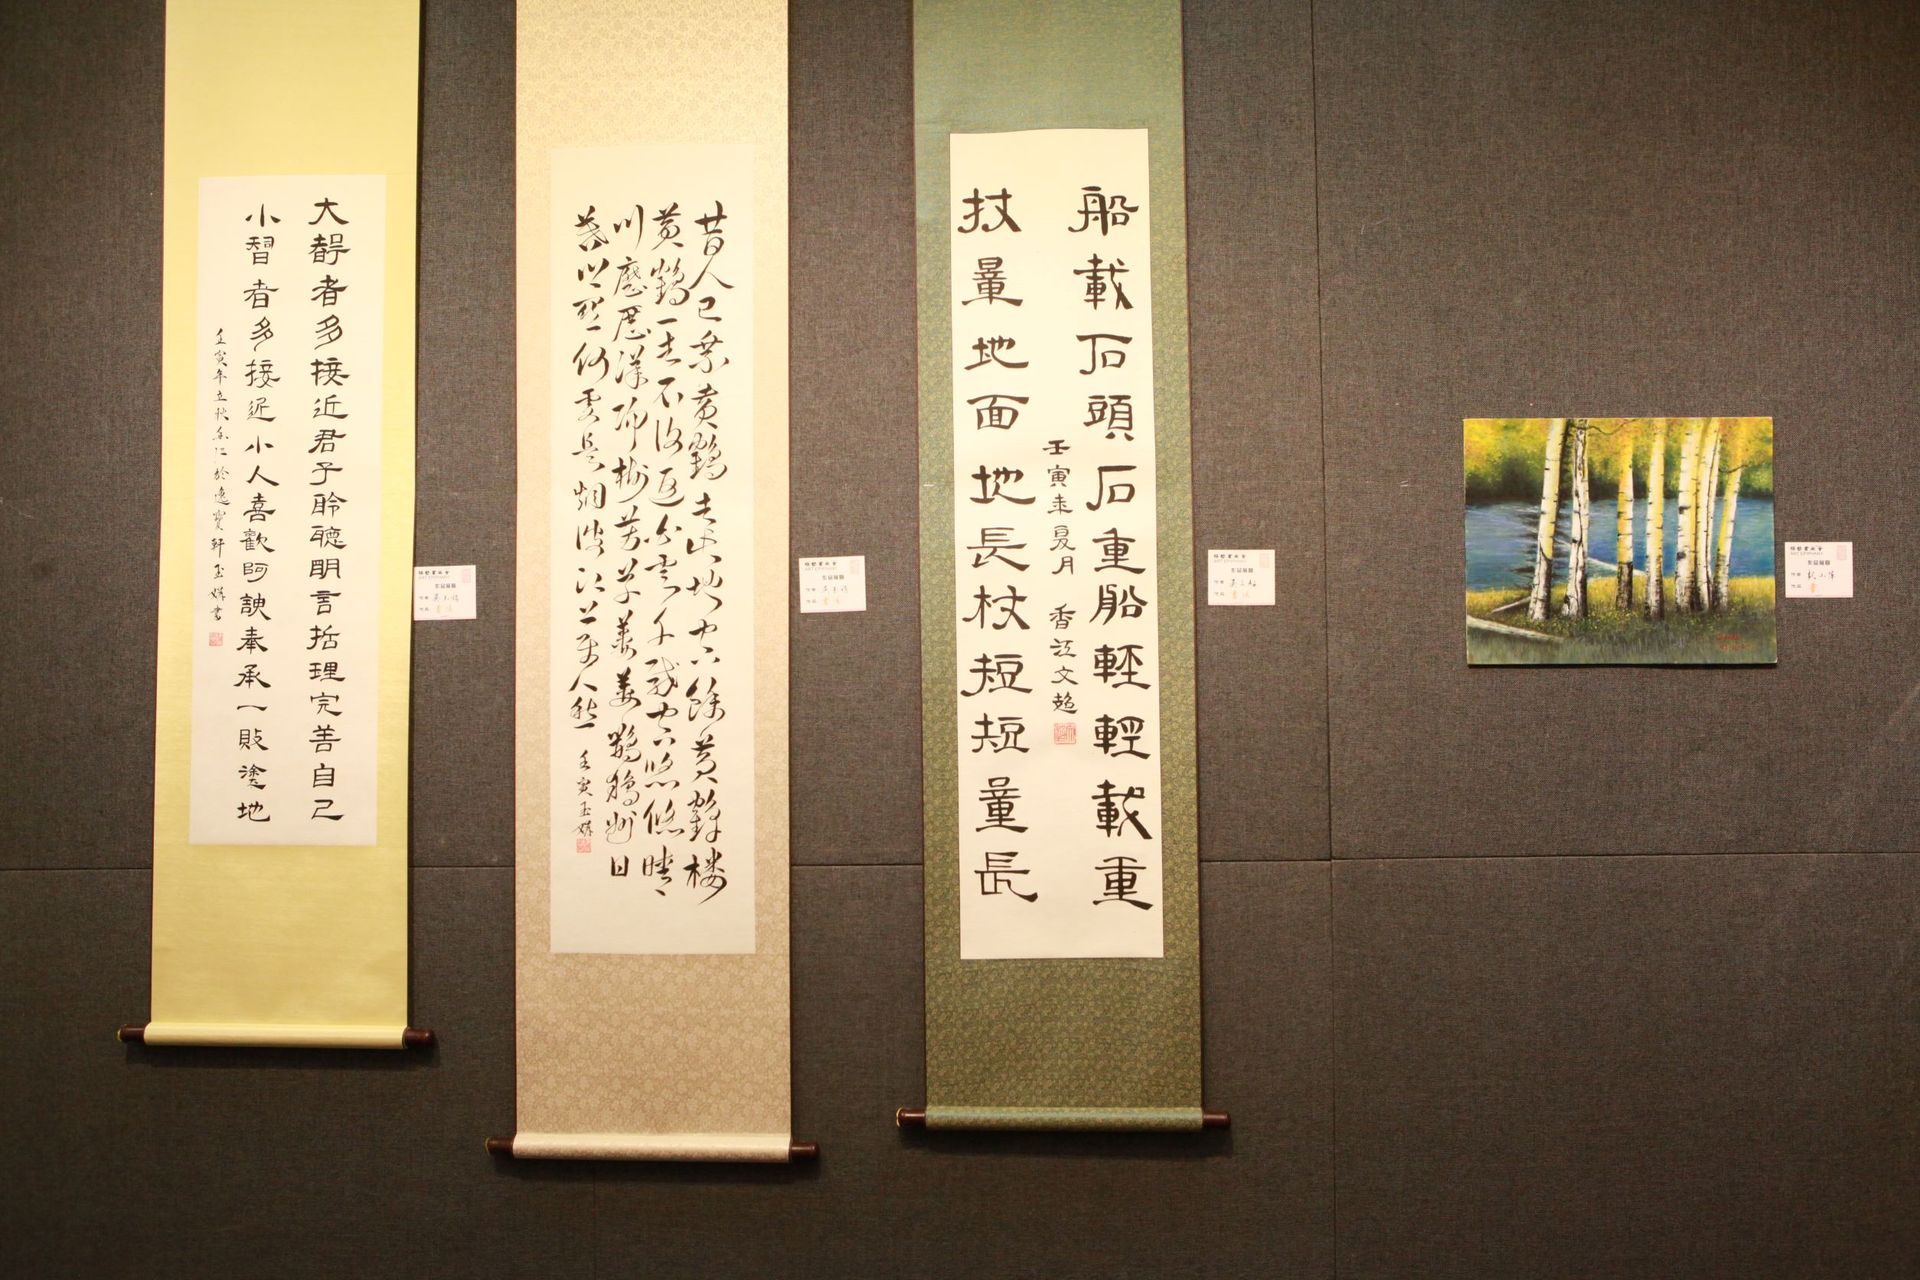 大智者多接近君子聆聽明言括理完善自己
小智者多接近小人喜歡阿諛奉承一敗塗地
壬寅年立秋香江於逸寶軒玉嫦書
昔人已乘黄鶴去此地空餘黄鶴楼
黄鶴一去不復返白雲千載空悠悠晴
川歷歷漢陽樹芳草萋萋鸚鵡洲日
暮鄉關何處是烟波江上使人愁
壬寅玉嫦
船載石頭石重船輕輕載重
杖量地面地長杖短短量長
壬寅年夏月 香江文超